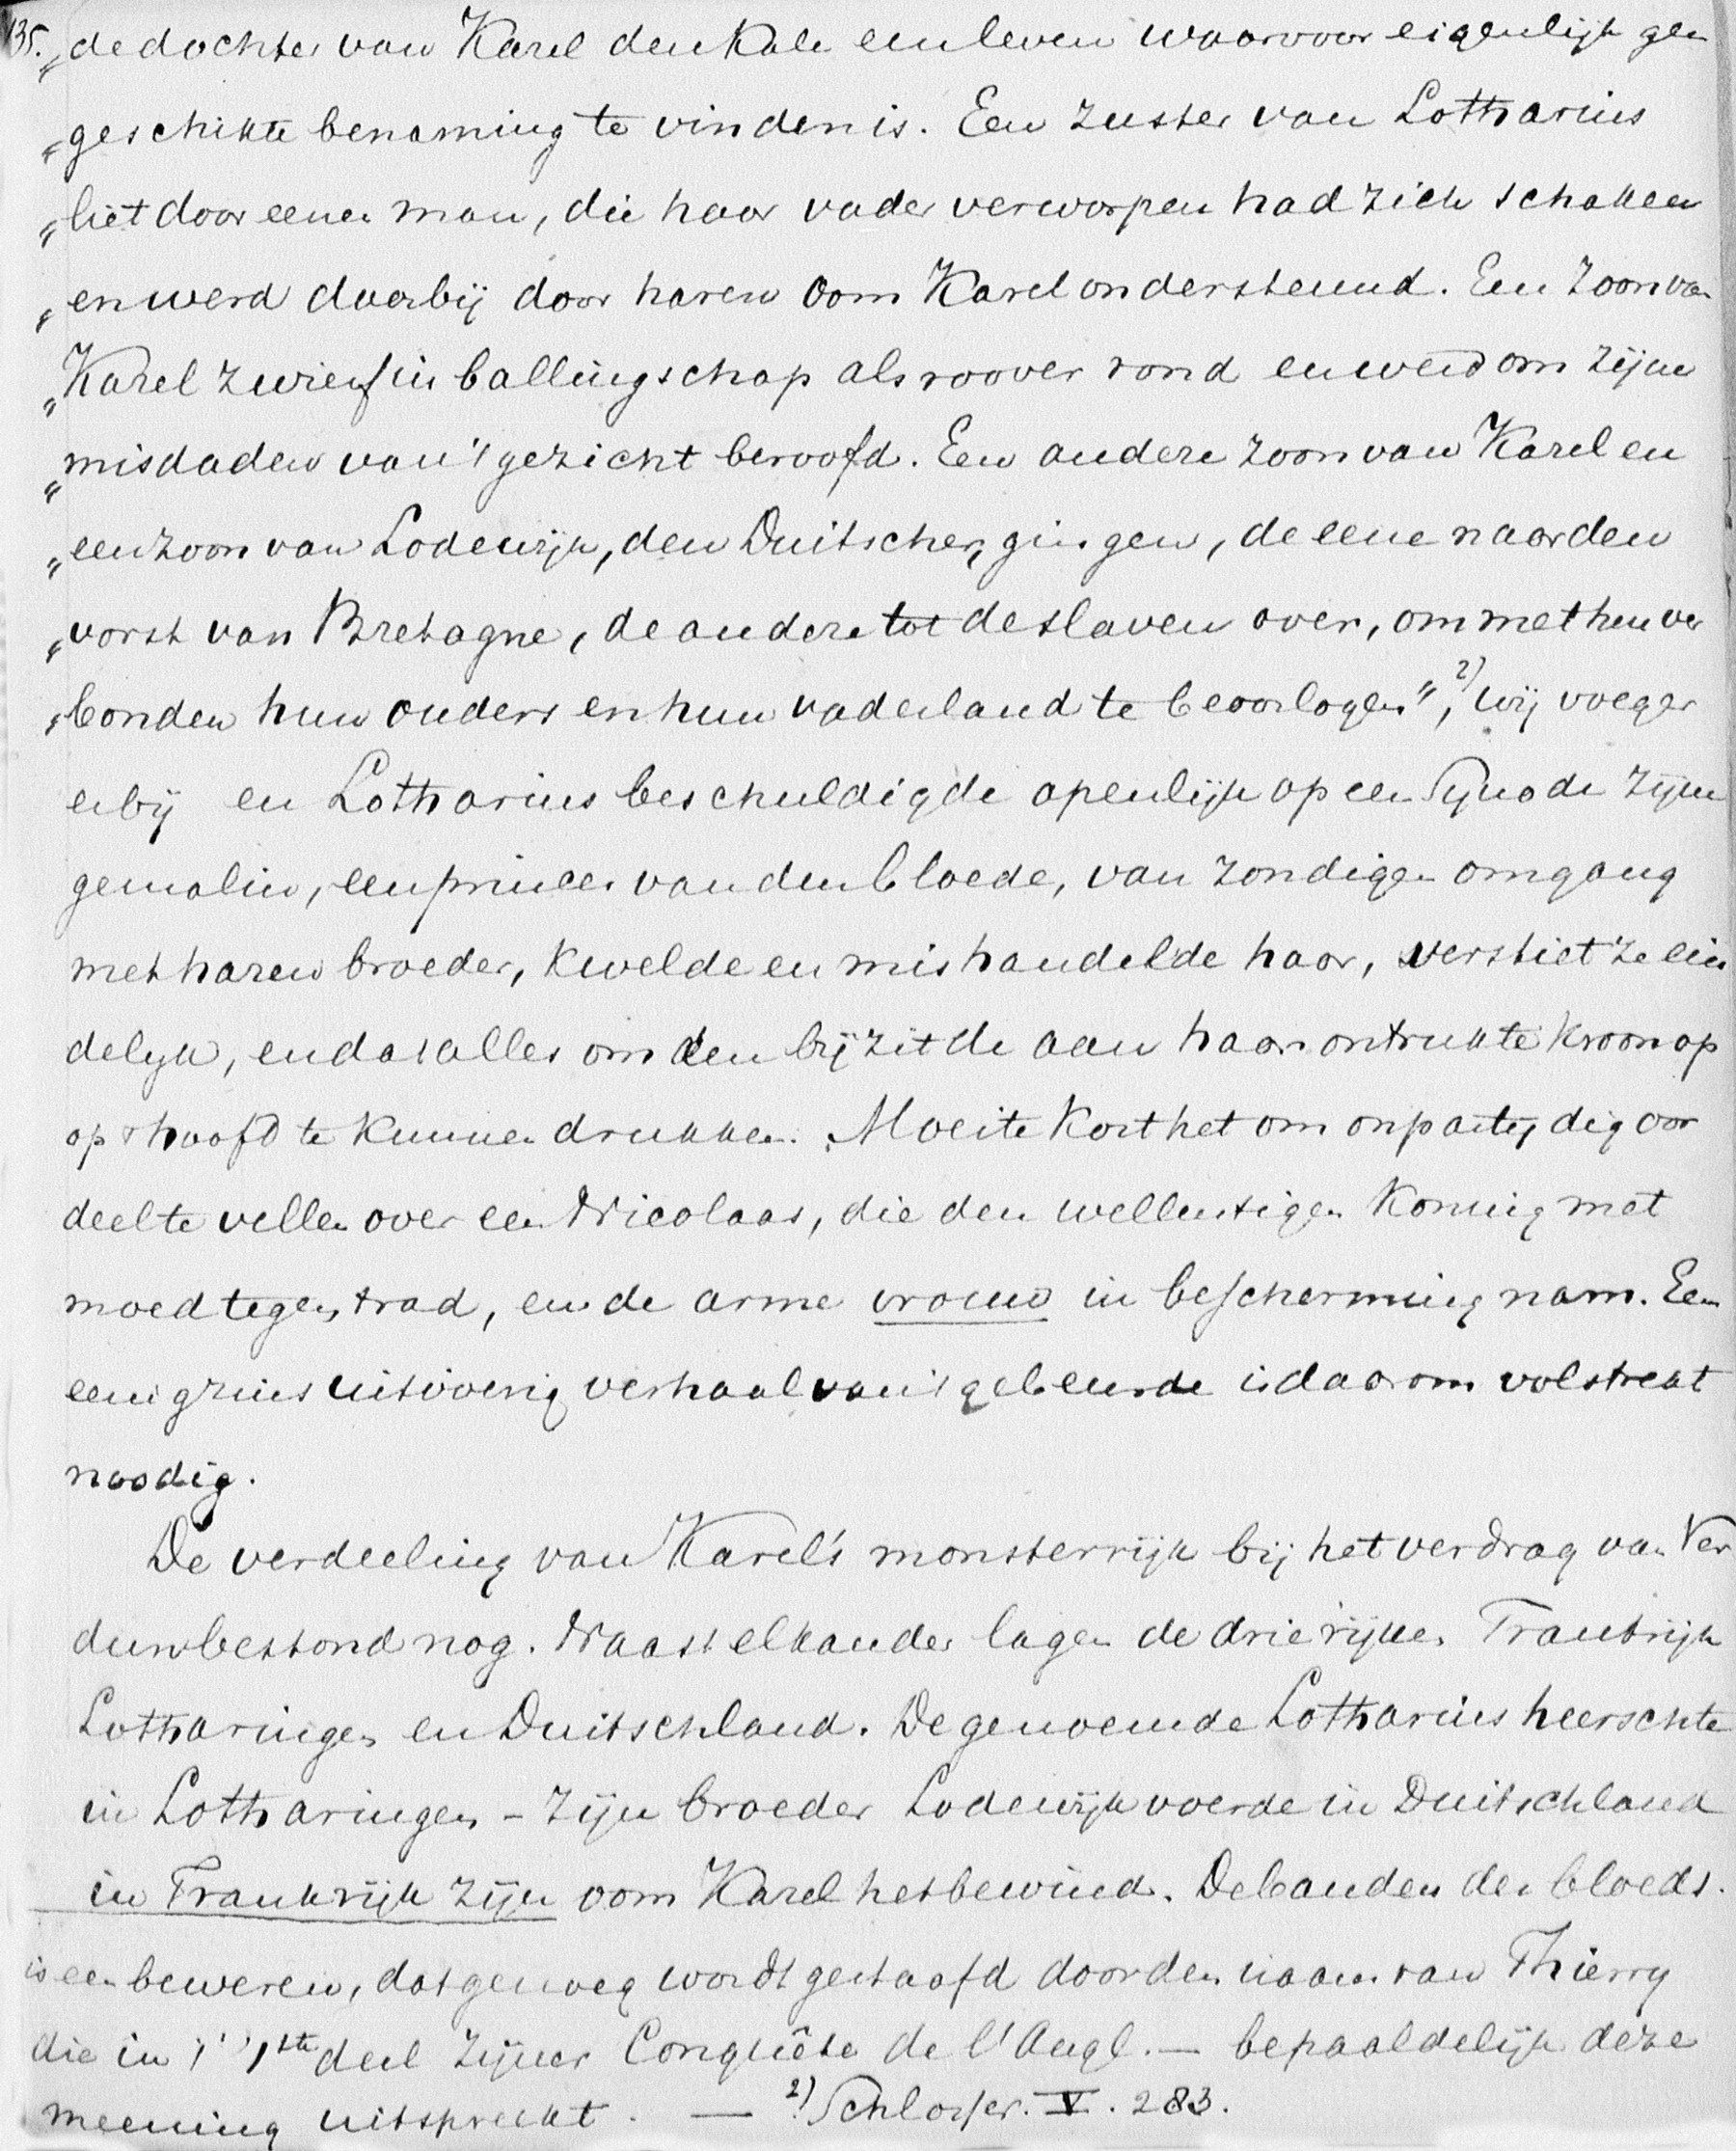 135. „de dochter van Karel den Kale een leven waarvoor eigenlijk geen
„geschikte benaming te vinden is. Een zuster van Lotharius
„liet door eenen man, die haar vader verworpen had zich schaken
„en werd daarbij door haren oom Karel ondersteund. Een zoon van
„Karel zwierf in ballingschap als roover rond en werd om zijne
„misdaden van 't gezicht beroofd. Een andere zoon van Karel en
„een zoon van Lodewijk, den Duitscher, gingen, de eene naar den
„vorst van Bretagne, de andere tot de slaven over, om met hen ver
„bonden hun ouders en hun vaderland te beoorlogen", 2) wij voegen
erbij en Lotharius beschuldigde openlijk op een Synode zijne
gemalin, een princes van den bloede, van zondigen omgang
met haren broeder, kwelde en mishandelde haar, verstiet ze ein
delijk, en dat alles om den bijzit de aan haar ontrukte kroon op
op 't hoofd te kunnen drukken. Moeite kost het om onpartijdig oor
deel te vellen over een Nicolaas, die den wellustigen Koning met
moed tegentrad, en de arme vrouw in bescherming nam. Een
eenigzins uitvoerig verhaal van 't gebeurde is daarom volstrekt
noodig.
De verdeeling van Karel's monsterrijk bij het verdrag van Ver
dun bestond nog. Naast elkander lagen de drie rijken Frankrijk
Lotharingen en Duitschland. De genoemde Lotharius heerschte
in Lotharingen – zijn broeder Lodewijk voerde in Duitschland
in Frankrijk zijn oom Karel het bewind. De banden des bloeds.
is een beweren, dat genoeg wordt gestaafd door den naam van Thierry
die in 't 1ste deel zijner Conquête de l'Angl. — bepaaldelijk deze
meening uitspreekt. — 2) Schlosser. V. 283.